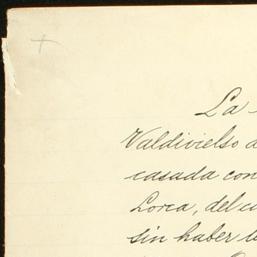 La
Valdivielso d
casada con
Lorca, del cu
sin haber